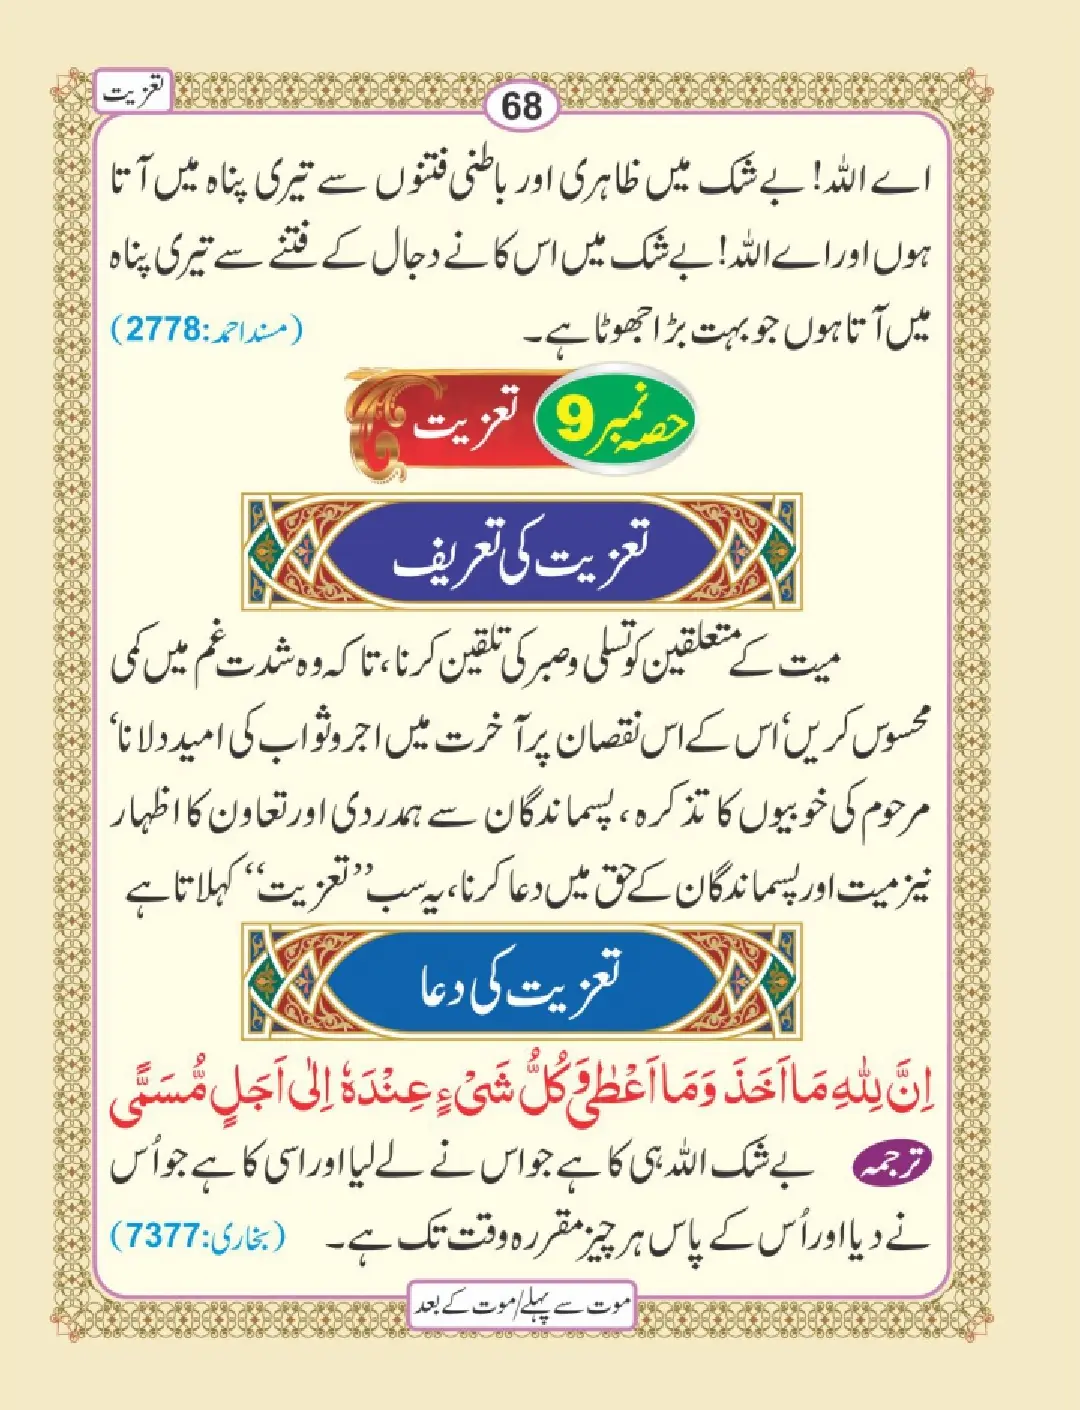 تعزیت
68
اے اللہ! بے شک میں ظاہری اور باطنی فتنوں سے تیری پناہ میں آتا
ہوں اور اے اللہ! بے شک میں اس کانے دجال کے فتنے سے تیری پناہ
میں آتا ہوں جو بہت بڑا جھوٹا ہے۔ (مسند احمد:2778)
حصہ نمبر 9 تعزیت
تعزیت کی تعریف
میت کے متعلقین کو تسلی و صبر کی تلقین کرنا، تا کہ وہ شدت غم میں کمی
محسوس کریں‘ اس کے اس نقصان پر آخرت میں اجر و ثواب کی امید دلانا‘
مرحوم کی خوبیوں کا تذکرہ، پسماندگان سے ہمدردی اور تعاون کا اظہار
نیز میت اور پسماندگان کے حق میں دعا کرنا، یہ سب ’’تعزیت‘‘ کہلاتا ہے
تعزیت کی دعا
اِنَّ لِلّٰهِ مَا اَخَذَ وَمَا اَعْطٰی وَکُلُّ شَیْءٍ عِنْدَهٗ اِلٰی اَجَلٍ مُّسَمًّی
ترجمہ بے شک اللہ ہی کا ہے جو اس نے لے لیا اور اسی کا ہے جو اُس
نے دیا اور اُس کے پاس ہر چیز مقررہ وقت تک ہے۔ (بخاری:7377)
موت سے پہلے/موت کے بعد